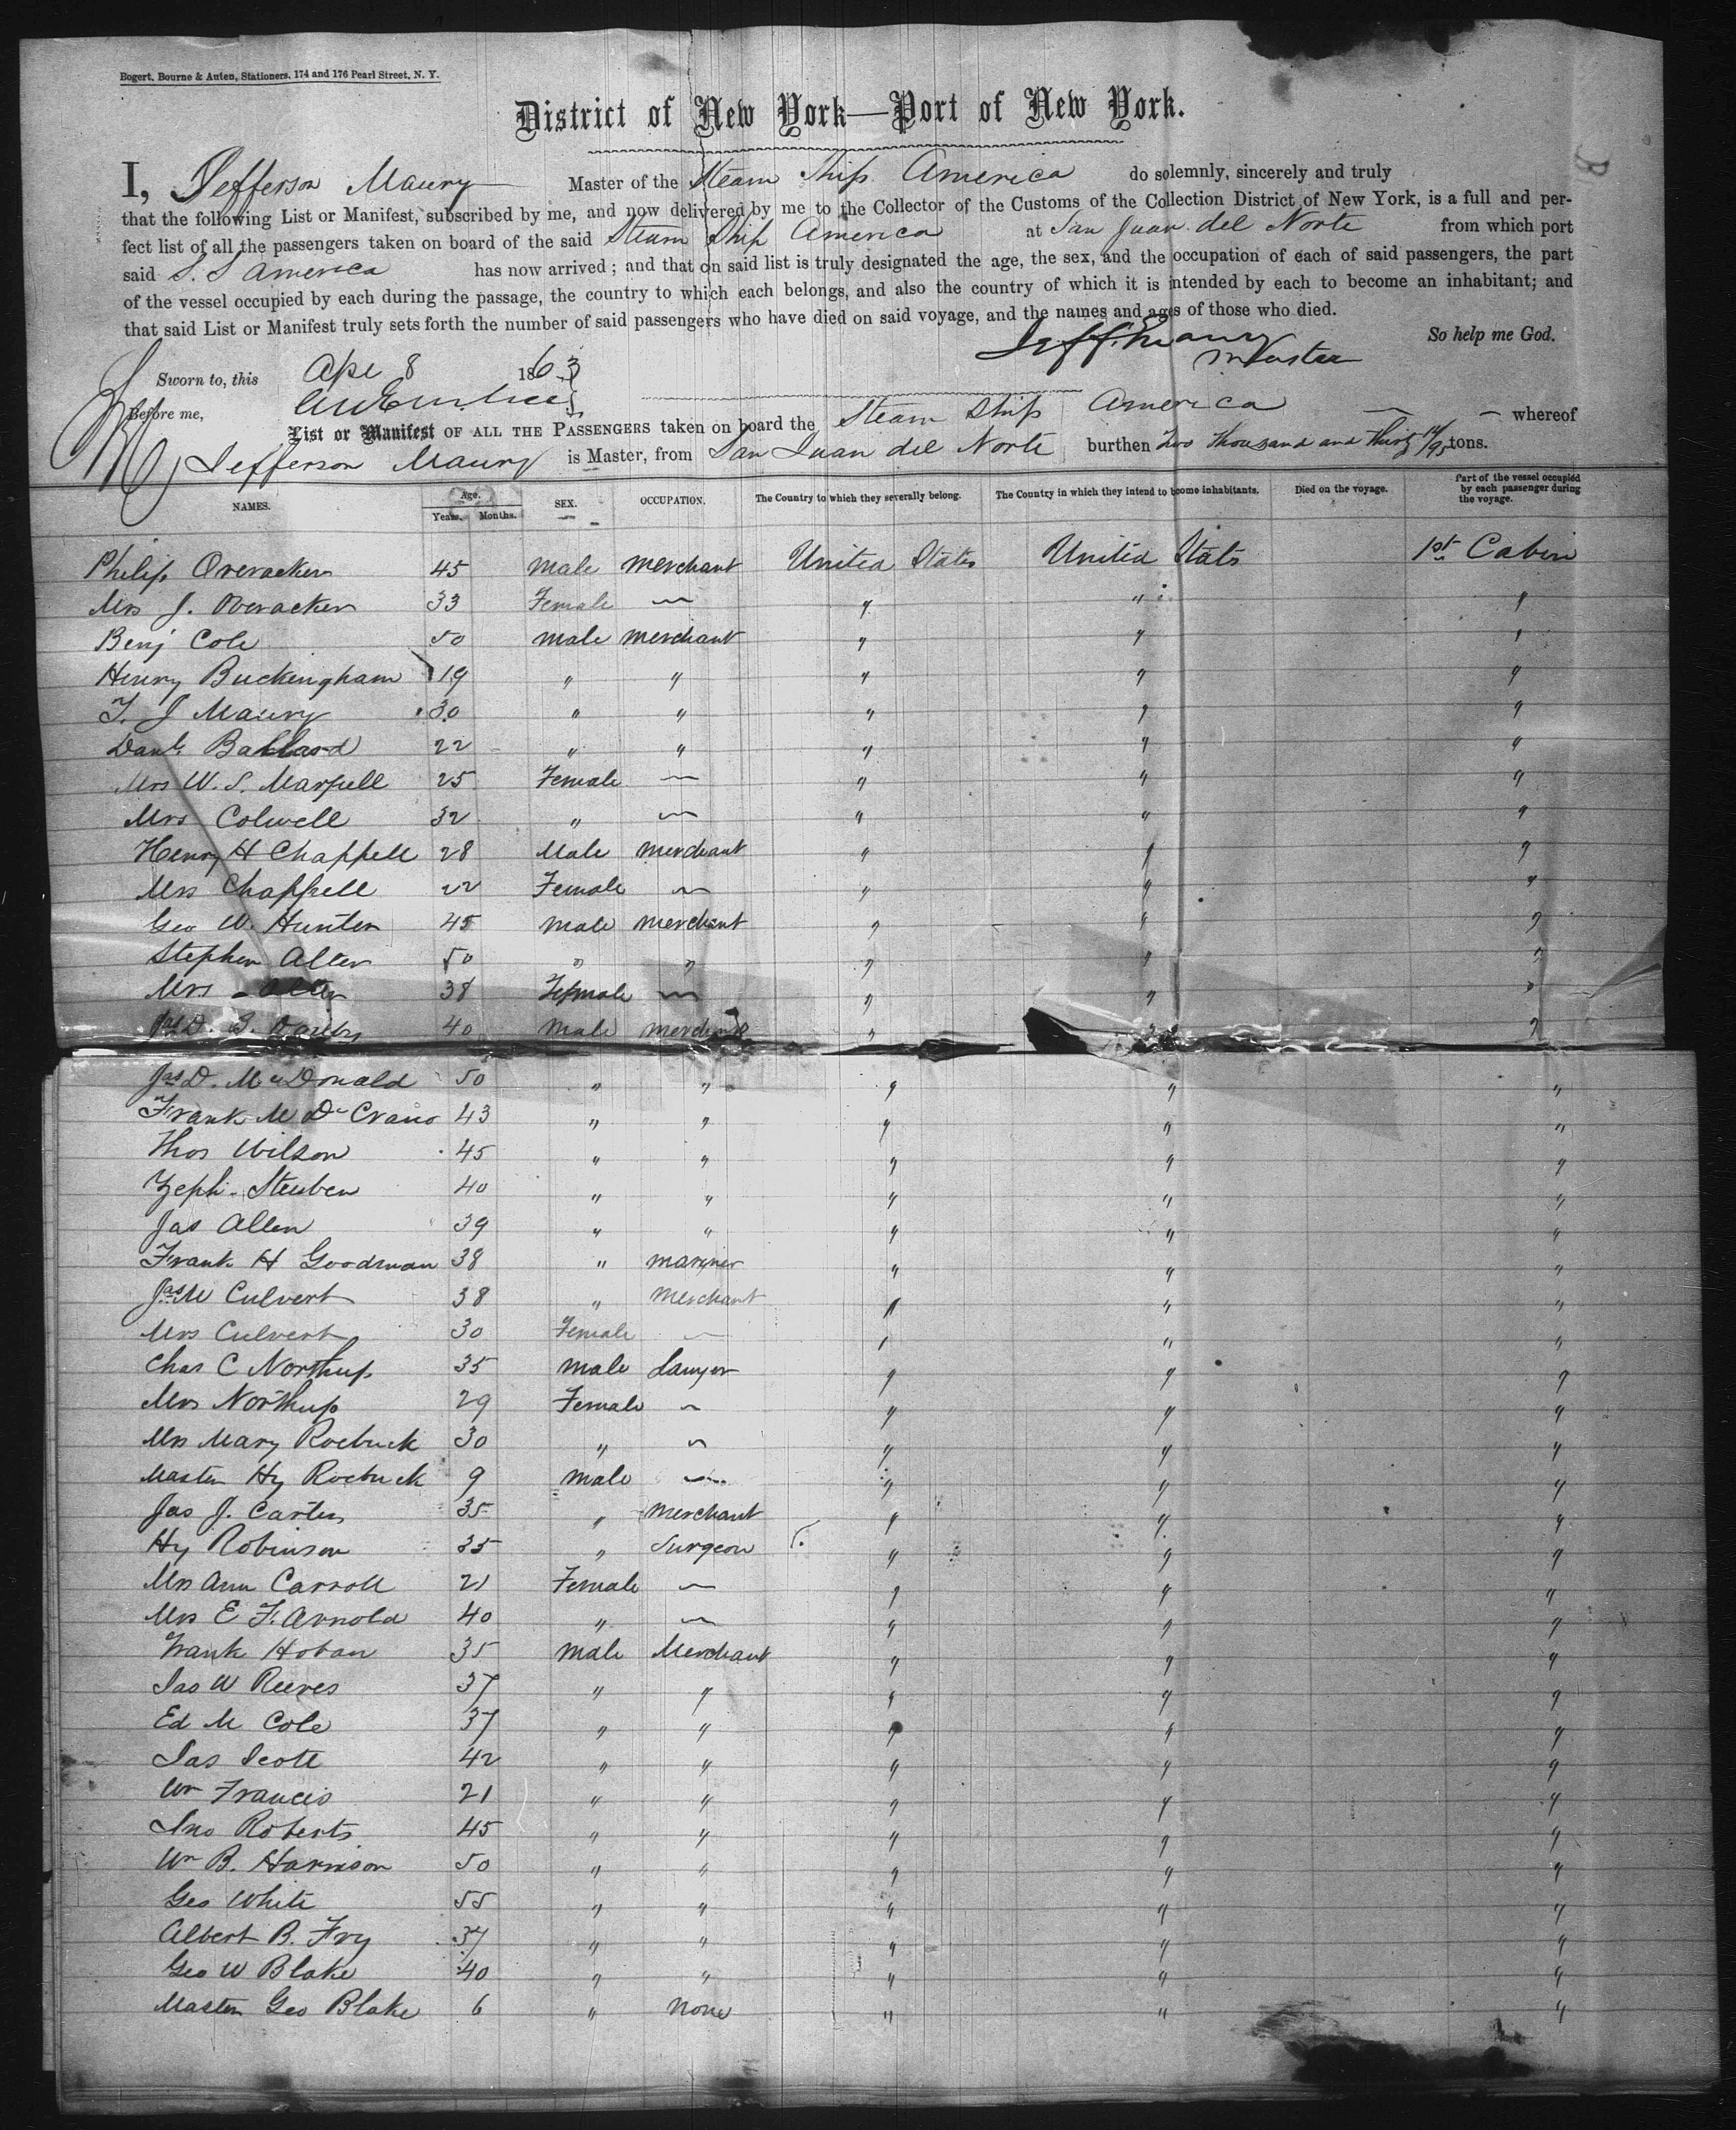 Bogert, Bourne & Auten, Stationers, 174 and 176 Pearl Street, N. Y.
District of New York—Port of New York.
I, Jefferson Maury Master of the Steam Ship America do solemnly, sincerely and truly
that the following List or Manifest, subscribed by me, and now delivered by me to the Collector of the Customs of the Collection District of New York, is a full and per-
fect list of all the passengers taken on board of the said Steam Ship America at San Juan del Norte from which port
said S. S America has now arrived; and that on said list is truly designated the age, the sex, and the occupation of each of said passengers, the part
of the vessel occupied by each during the passage, the country to which each belongs, and also the country of which it is intended by each to become an inhabitant; and
that said List or Manifest truly sets forth the number of said passengers who have died on said voyage, and the names and ages of those who died.
Jeff. Maury So help me God.
Master
Sworn to, this Apl 8 1863
Before me,
List or Manifest OF ALL THE PASSENGERS taken on board the Steam Ship America whereof
Jefferson Maury is Master, from San Juan del Norte burthen Two thousand and thirty 14/95 tons.
NAMES. Age. Years. Months. SEX. OCCUPATION. The Country to which they severally belong. The Country in which they intend to become inhabitants. Died on the voyage. Part of the vessel occupied by each passenger during the voyage.
Philip Overacker 45 Male Merchant United States United States 1st Cabin
Mrs J. Overacker 33 Female — " " "
Benj Cole 50 Male Merchant " " "
Henry Buckingham 19 " " " " "
T. J Maury 30 " " " " "
Danl. Ballard 22 " " " " "
Mrs W. S. 25 Female — " " "
Mrs Colwell 32 " — " " "
Henry H Chappell 28 Male Merchant " " "
Mrs Chappell 22 Female — " " "
Geo W. Hunter 45 Male Merchant " " "
Stephen Alter 50 " " " " "
Mrs - Alter 38 Female — " " "
40 Male Merchant " " "
Jas D. McDonald 50 " " " " "
Frank M 43 " " " " "
Thos Wilson 45 " " " " "
Zeph. Steuben 40 " " " " "
Jas Allen 39 " " " " "
Frank H Goodman 38 " Mariner " " "
Jas M Culvert 38 " Merchant " " "
Mrs Culvert 30 Female — " " "
Chas C Northup 35 Male Lawyer " " "
Mrs Northup 29 Female — " " "
Mrs Mary Roebuck 30 " — " " "
Master Hy Roebuck 9 Male — " " "
Jas J. Carter 35 " Merchant " " "
Hy Robinson 35 " Surgeon " " "
Mrs Ann Carroll 21 Female — " " "
Mrs E F. Arnold 40 " — " " "
Frank Hoban 35 Male Merchant " " "
Jas W Reeves 37 " " " " "
Ed M Cole 37 " " " " "
Jas Scott 42 " " " " "
Wm Francis 21 " " " " "
Jno Roberts 45 " " " " "
Wm B. Harrison 50 " " " " "
Geo White 55 " " " " "
Albert B. Fry 37 " " " " "
Geo W Blake 40 " " " " "
Master Geo Blake 6 " None " " "